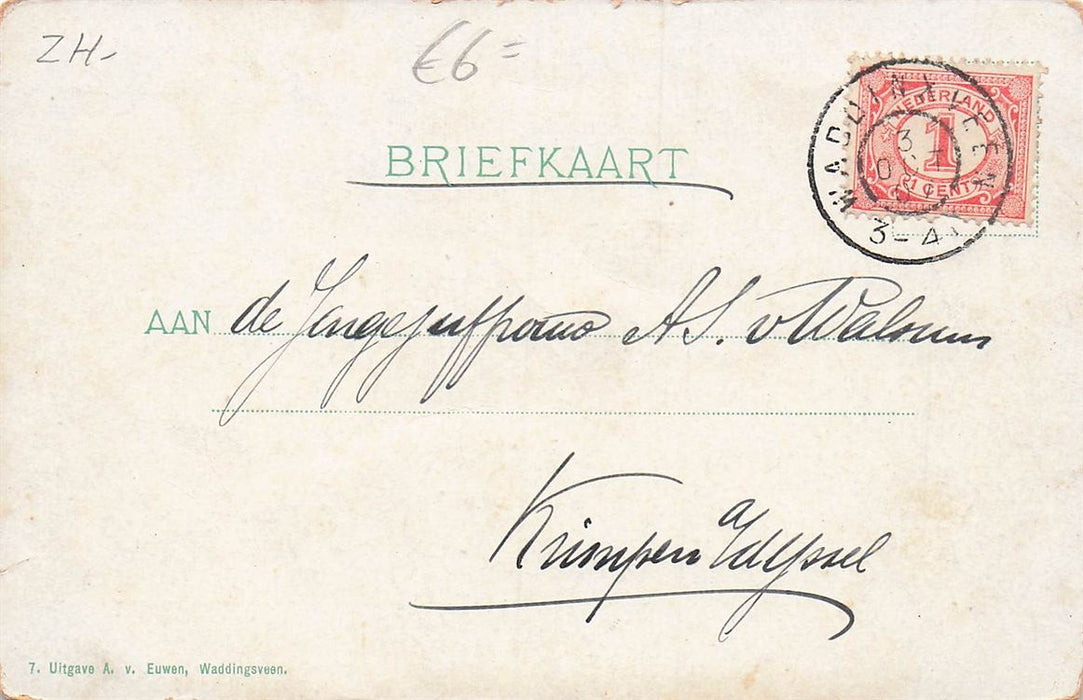 ZH-
€6=
NEDERLAND
1
1 CENT
3-4
BRIEFKAART
AAN de Jongejuffrouw A.S. v Walsum
Krimpen a/d IJssel
7. Uitgave A. v. Euwen, Waddingsveen.